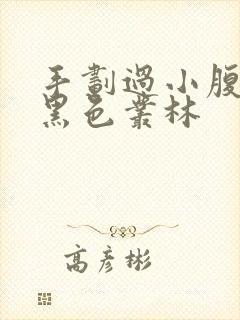 手劃過小腹
黑色叢林
高彥彬